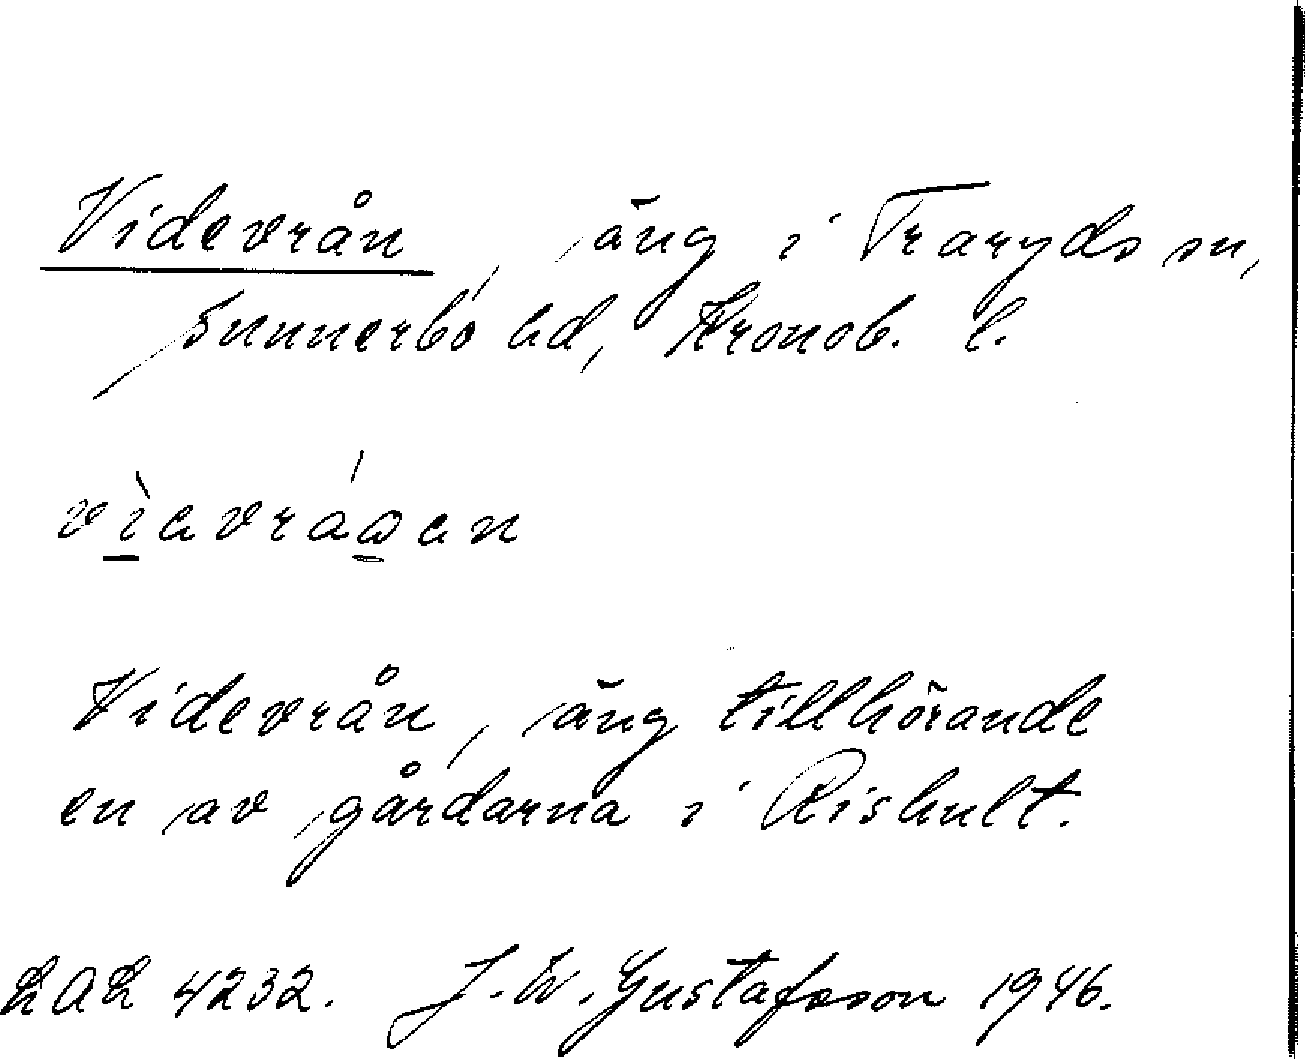 Videvrån, äng i Traryds sn,
Sunnerbo hd, Kronob. l.
Videvrån, äng tillhörande
en av gårdarna i Rishult.
LAL 4232. J. W. Gustafsson 1946.